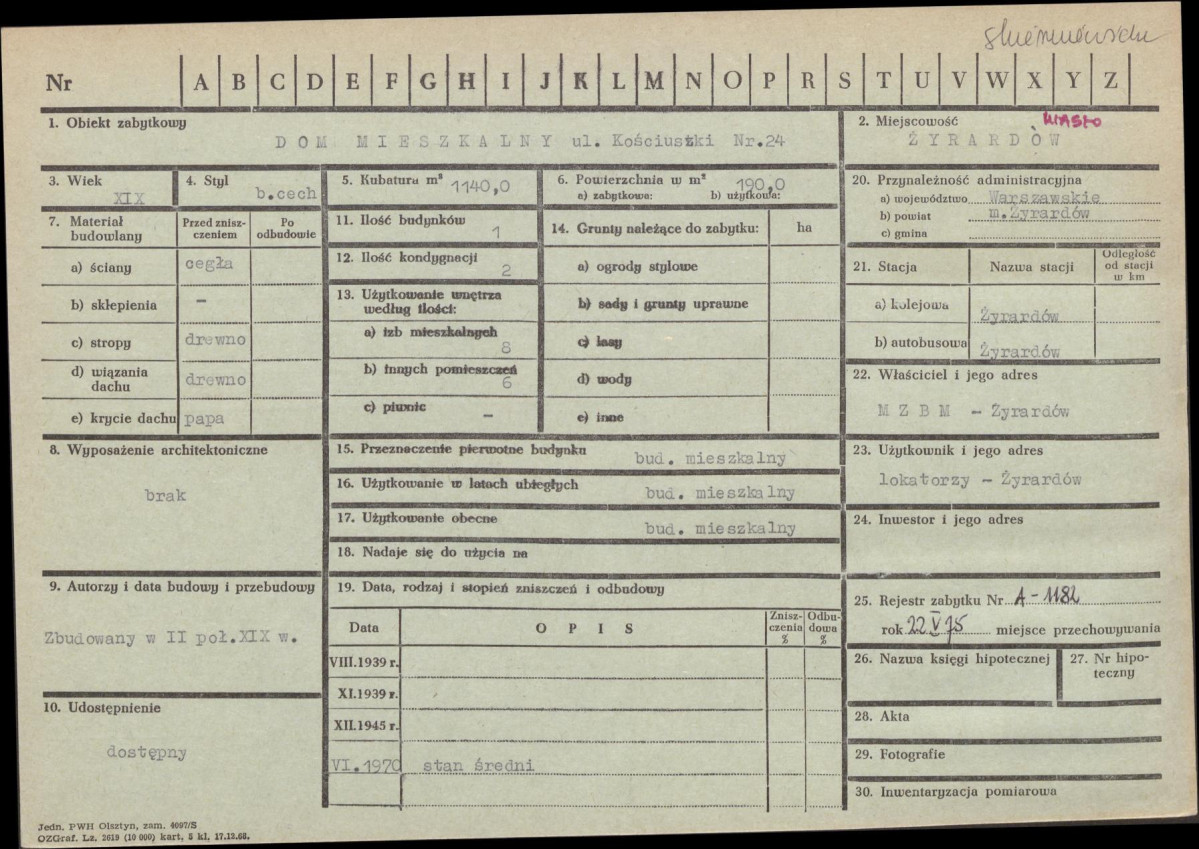 skierniewickie
Nr A B C D E F G H I J K L M N O P R S T U V W X Y Z
1. Obiekt zabytkowy
DOM MIESZKALNY ul. Kościuszki Nr.24
2. Miejscowość MIASTO
ŻYRARDÓW
3. Wiek
XIX
4. Styl
b.cech
5. Kubatura m³ 1140,0
6. Powierzchnia w m² 190,0
a) zabytkowa: b) użytkowa:
7. Materiał budowlany
Przed zniszczeniem
Po odbudowie
a) ściany cegła
b) sklepienia –
c) stropy drewno
d) wiązania dachu drewno
e) krycie dachu papa
8. Wyposażenie architektoniczne
brak
9. Autorzy i data budowy i przebudowy
Zbudowany w II poł.XIX w.
10. Udostępnienie
dostępny
11. Ilość budynków
1
12. Ilość kondygnacji
2
13. Użytkowanie wnętrza
według ilości:
a) izb mieszkalnych
8
b) innych pomieszczeń
6
c) piwnic –
14. Grunty należące do zabytku: ha
a) ogrody stylowe
b) sady i grunty uprawne
c) lasy
d) wody
e) inne
15. Przeznaczenie pierwotne budynku
bud. mieszkalny
16. Użytkowanie w latach ubiegłych
bud. mieszkalny
17. Użytkowanie obecne
bud. mieszkalny
18. Nadaje się do użycia na
19. Data, rodzaj i stopień zniszczeń i odbudowy
Data OPIS Zniszczenia % Odbudowa %
VIII.1939 r.
XI.1939 r.
XII.1945 r.
VI.1970 stan średni
20. Przynależność administracyjna
a) województwo Warszawskie
b) powiat m.Żyrardów
c) gmina
21. Stacja Nazwa stacji Odległość od stacji w km
a) kolejowa Żyrardów
b) autobusowa Żyrardów
22. Właściciel i jego adres
M Z B M – Żyrardów
23. Użytkownik i jego adres
lokatorzy – Żyrardów
24. Inwestor i jego adres
25. Rejestr zabytku Nr A-1182
rok 22 V 75 miejsce przechowywania
26. Nazwa księgi hipotecznej
27. Nr hipoteczny
28. Akta
29. Fotografie
30. Inwentaryzacja pomiarowa
Jedn. PWH Olsztyn, zam. 4097/S
OZGraf. Lz. 2619 (10 000) kart. 5 kl. 17.12.68.